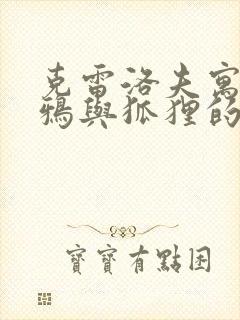 克雷洛夫寓
鴉與狐狸的
寶寶有點困